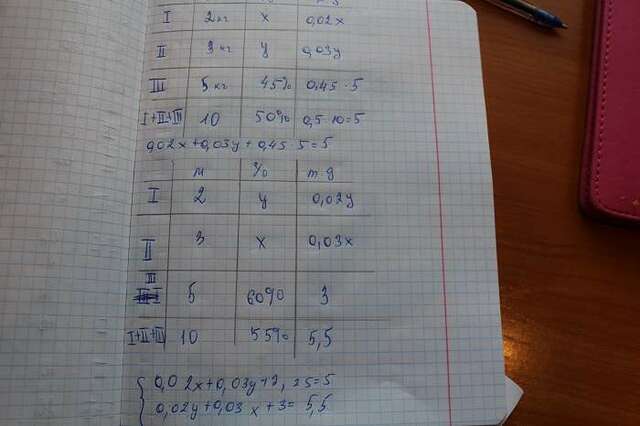 I 2кг x 0,02x
II 3кг y 0,03y
III 5кг 45% 0,45·5
I+II+III 10 50% 0,5·10=5
0,02x+0,03y+0,45·5=5
м % m g
I 2 y 0,02y
II 3 x 0,03x
III 5 60% 3
I+II+III 10 55% 5,5
0,02x+0,03y+2,25=5
0,02y+0,03x+3=5,5